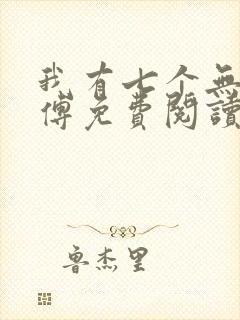 我有七个無
傅免費閱讀
鲁杰里